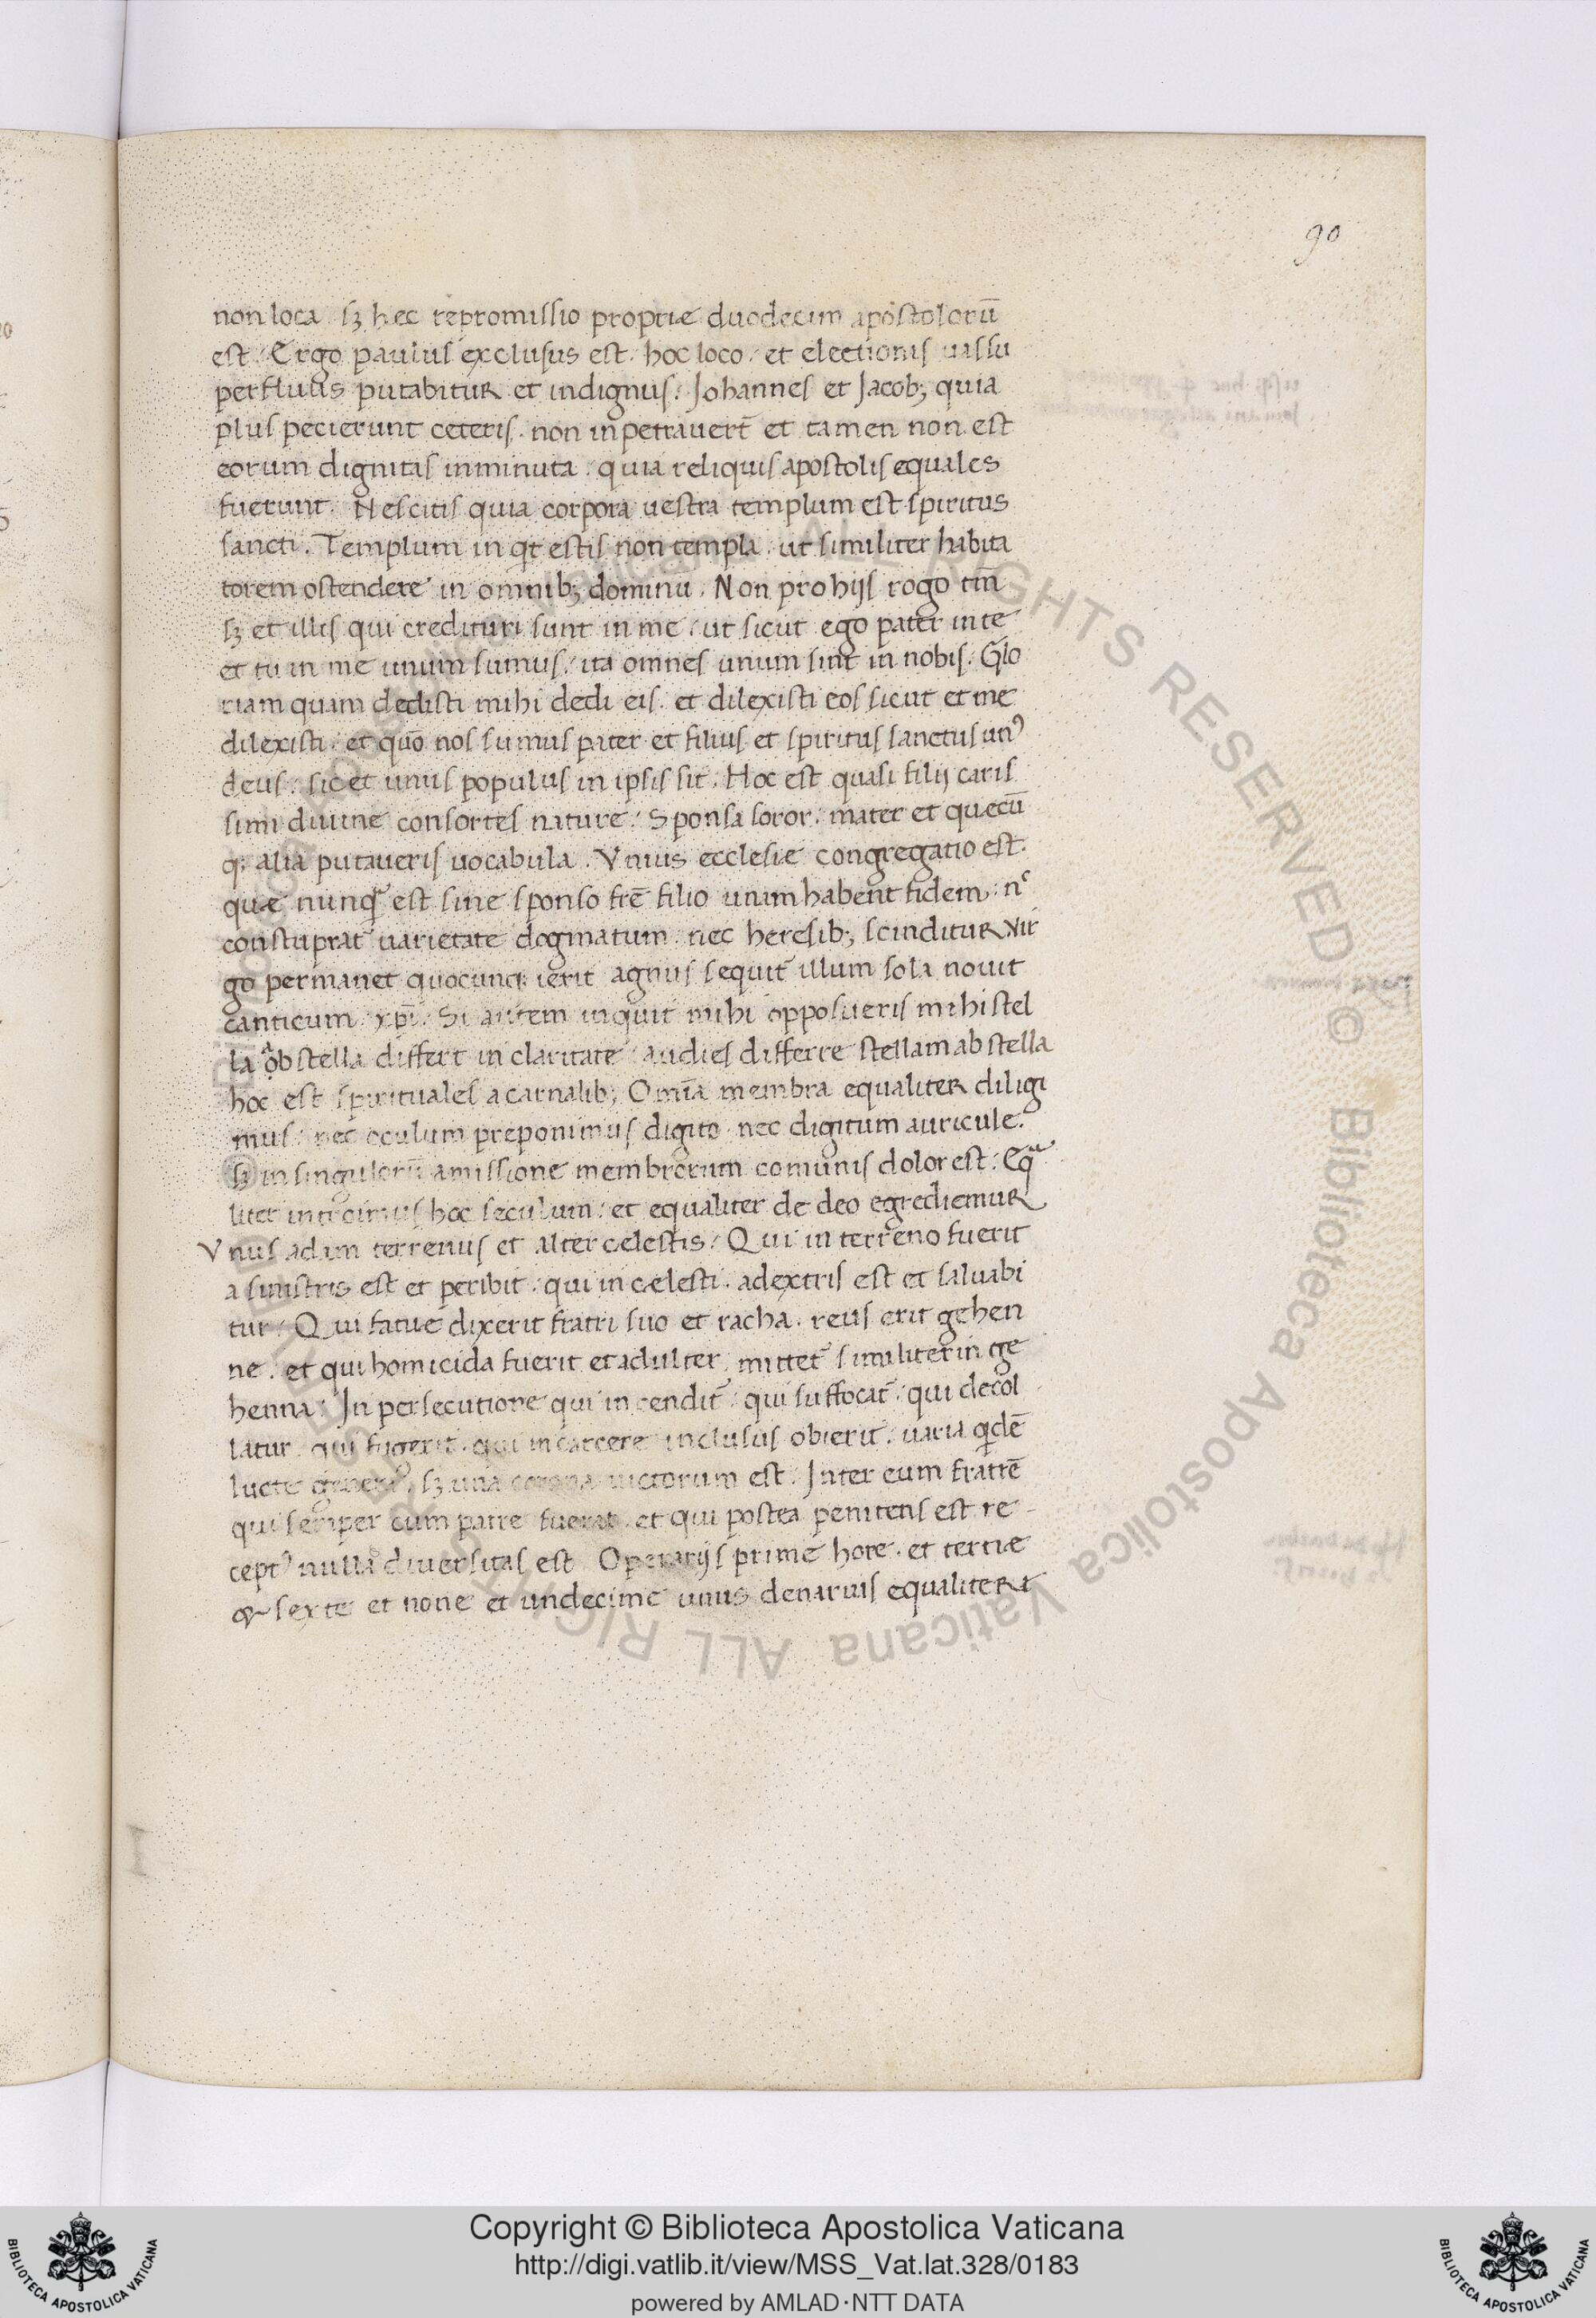 90
non loca. sꝫ hec repromissio propriæ duodecim apostolorū
est. Ergo paulus exclusus est. hoc loco. et electionis uas su
perfluus putabitur et indignus. Johannes et Jacobꝫ quia
plus pecierunt ceteris. non inpetrauert̄ et tamen non est
eorum dignitas inminuta. quia reliquis apostolis equales
fuerunt. Nescitis quia corpora uestra templum est spiritus
sancti. Templum inqt estis non templa. ut similiter habita
torem ostendere in omnibꝫ dominū. Non pro hijs rogo tm̄
sꝫ et illis qui credituri sunt in me. ut sicut ego pater in te
et tu in me unum sumus. ita omnes unum sint in nobis. Glo
riam quam dedisti mihi dedi eis. et dilexisti eos sicut et me
dilexisti. et quō nos sumus pater et filius et spiritus sanctus unꝰ
deus. sic et unus populus in ipsis sit. Hoc est quasi filij caris
simi diuine consortes nature. Sponsa soror. mater et quecū
qꝫ alia putaueris uocabula. Vnius ecclesiæ congregatio est.
quæ nunqᵃ est sine sponso fr̄e filio unam habent fidem. nᶜ
constuprat᷑ uarietate dogmatum. nec heresibꝫ scinditur vir
go permanet quocunqꝫ ierit agnus sequit᷑ illum sola nouit
canticum xp̄i. Si autem inquit mihi opposueris mihi stel
la ab stella differt in claritate. audies differre stellam ab stella
hoc est spirituales a carnalibꝫ Omīa membra equaliter diligi
mus. nec oculum preponimus digito. nec digitum auricule.
sꝫ in singulorū amissione membrorum comunis dolor est. Eqᵃ
liter introimus hoc seculum. et equaliter de deo egrediemur
Vnus adam terrenus et alter celestis. Qui in terreno fuerit
a sinistris est et peribit. qui in cælesti. a dextris est et saluabi
tur. Qui fatue dixerit fratri suo et racha. reus erit gehen
ne. et qui homicida fuerit et adulter mittet᷑ similiter in ge
henna. In persecutione qui incendit᷑. qui suffocat᷑. qui decol
latur. qui fugerit. qui in carcere inclusus obierit. uaria qdē
lucte genera, sꝫ una corona uictorum est. Inter eum fratrē
qui semper cum patre fuerat. et qui postea penitens est re
ceptꝰ nulla diuersitas est. Operarijs prime hore. et tertiæ
qꝫ sexte et none et undecime unus denarius equaliter r
Biblioteca Apostolica Vaticana ALL RIGHTS RESERVED ©
Copyright © Biblioteca Apostolica Vaticana
http://digi.vatlib.it/view/MSS_Vat.lat.328/0183
powered by AMLAD·NTT DATA
BIBLIOTECA APOSTOLICA VATICANA
BIBLIOTECA APOSTOLICA VATICANA